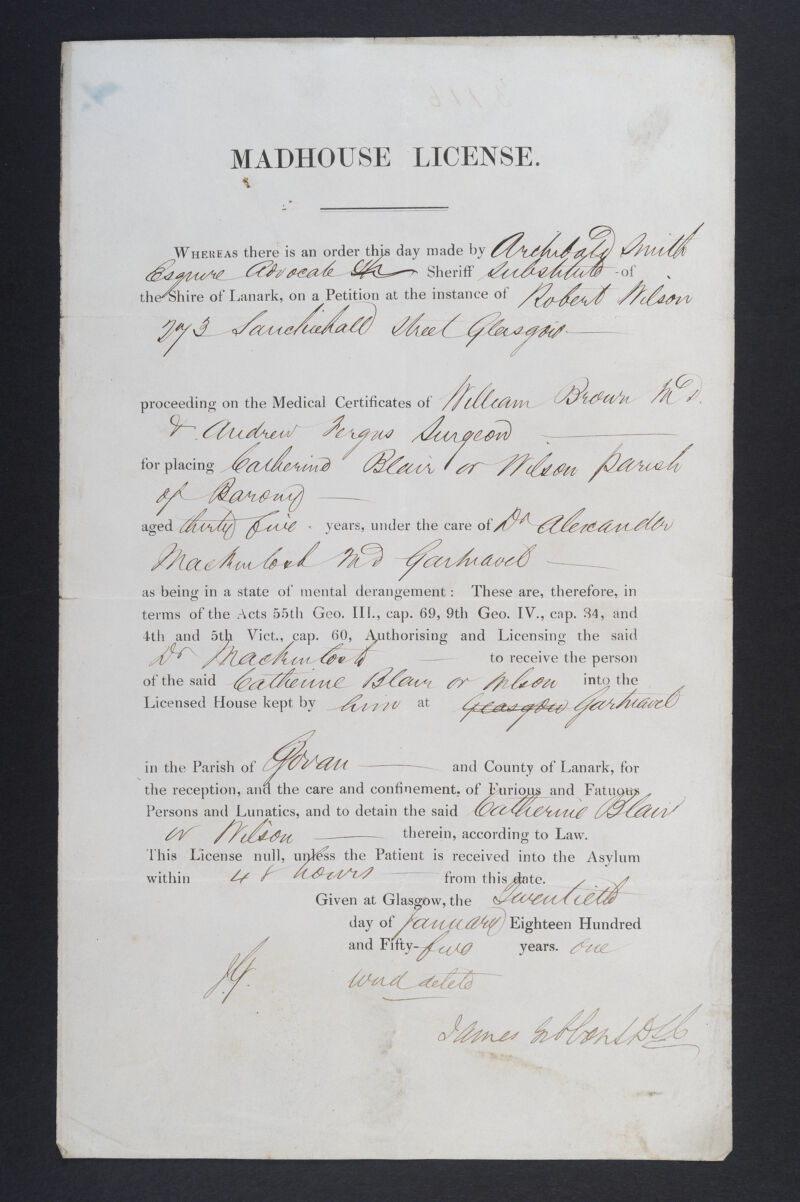 MADHOUSE LICENSE.
WHEREAS there is an order this day made by Archibald Smith
Esquire Advocate Sheriff Substitute of
the Shire of Lanark, on a Petition at the instance of Robert Wilson
273 Sauchiehall Street Glasgow
proceeding on the Medical Certificates of William Brown MD.
& Andrew Fergus Surgeon
for placing Catherine Blair or Wilson parish
of Barony
aged thirty five years, under the care of Dr Alexander
Mackintosh MD Gartnavel
as being in a state of mental derangement: These are, therefore, in
terms of the Acts 55th Geo. III., cap. 69, 9th Geo. IV., cap. 34, and
4th and 5th Vict., cap. 60, Authorising and Licensing the said
Dr Mackintosh to receive the person
of the said Catherine Blair or Wilson into the
Licensed House kept by him at Glasgow Gartnavel
in the Parish of Govan and County of Lanark, for
the reception, and the care and confinement, of Furious and Fatuous
Persons and Lunatics, and to detain the said Catherine Blair
or Wilson therein, according to Law.
This License null, unless the Patient is received into the Asylum
within 48 hours from this date.
Given at Glasgow, the Twentieth
day of January Eighteen Hundred
and Fifty-two years. one
word delete
James Gibbons